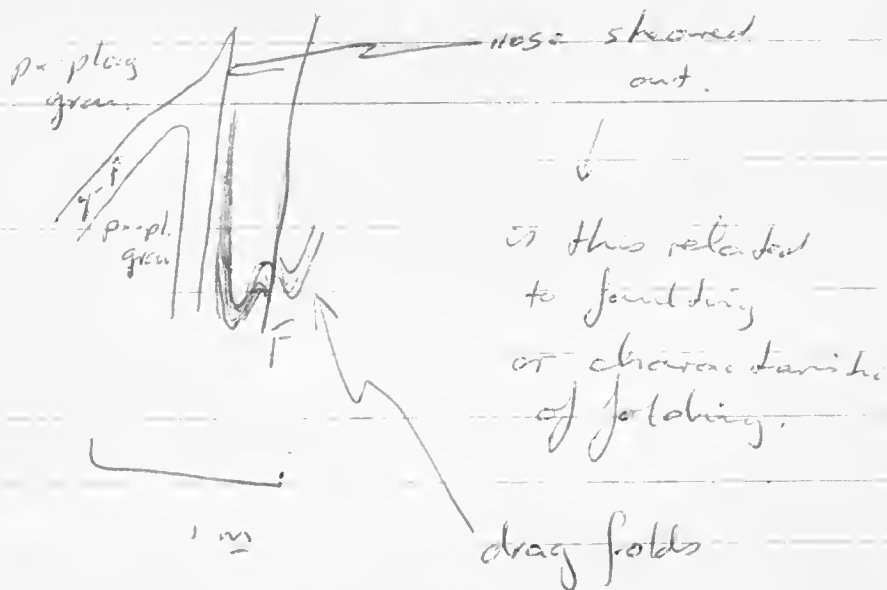 px-plag
gran.
nose sheared
out.
q-f
px-pl.
gran
is this related
to faulting
or characteristic
of folding.
F
1 m
drag folds